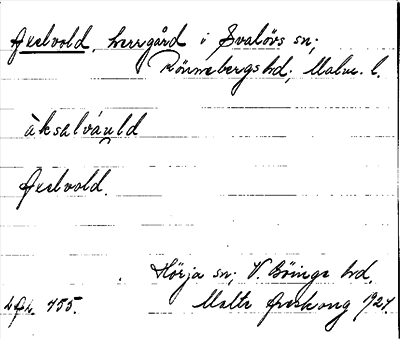 Axelvold, herrgård i Svalövs sn;
Rönnebergs hd; Malm. l.
àksəlvåu̯ld
Axelvold.
Hörja sn; V. Göinge hd.
755. Malte 1924.